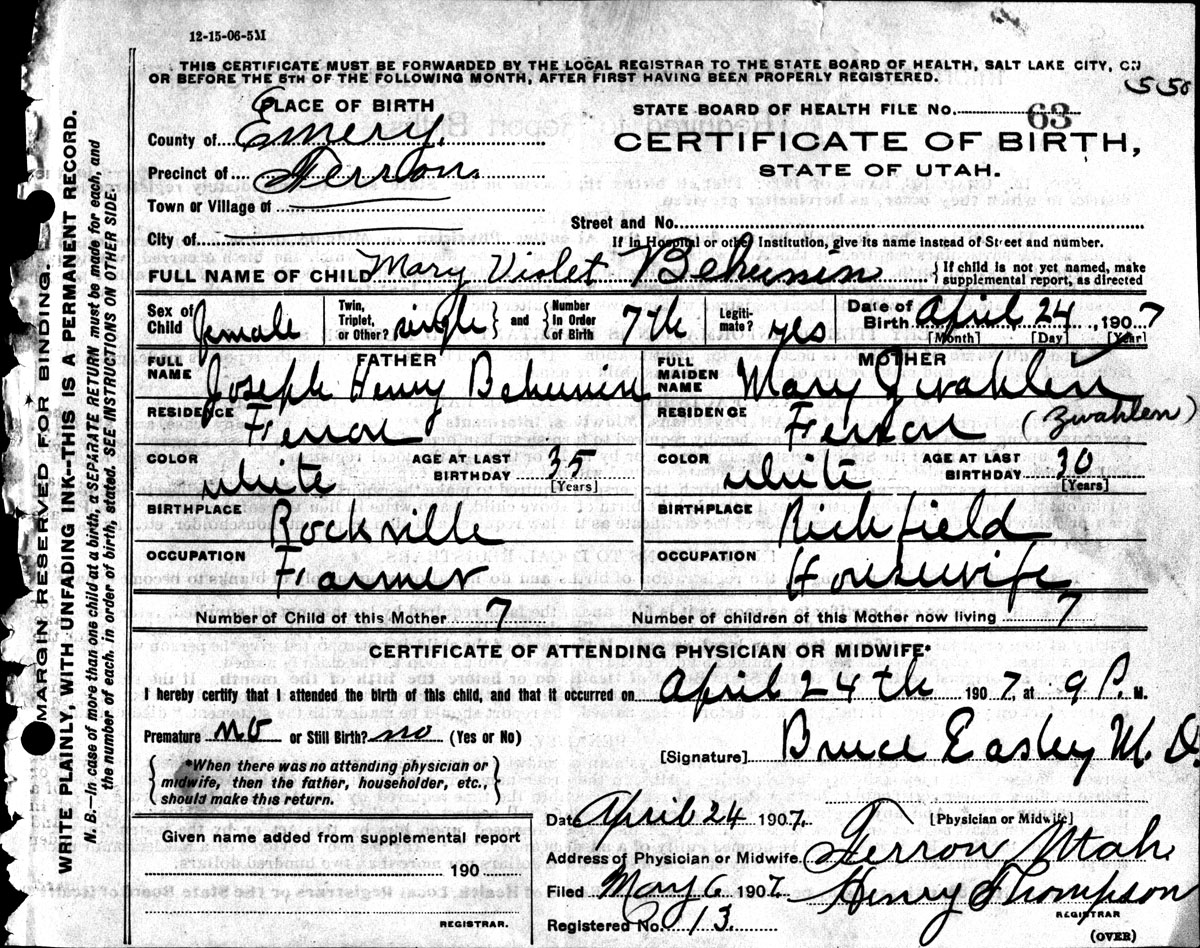 12-15-06-5M
THIS CERTIFICATE MUST BE FORWARDED BY THE LOCAL REGISTRAR TO THE STATE BOARD OF HEALTH, SALT LAKE CITY, ON
OR BEFORE THE 5TH OF THE FOLLOWING MONTH, AFTER FIRST HAVING BEEN PROPERLY REGISTERED.
550
PLACE OF BIRTH
County of Emery
Precinct of Ferron
Town or Village of
City of
STATE BOARD OF HEALTH FILE No. 63
CERTIFICATE OF BIRTH,
STATE OF UTAH.
Street and No.
If in Hospital or other Institution, give its name instead of Street and number.
FULL NAME OF CHILD Mary Violet Behunin { If child is not yet named, make
supplemental report, as directed
Sex of Child female Twin, Triplet, or Other? single } and { Number In Order of Birth 7th Legiti-mate? yes Date of Birth April 24, 1907
[Month] [Day] [Year]
FATHER
FULL NAME Joseph Henry Behunin
RESIDENCE Ferron
COLOR white AGE AT LAST BIRTHDAY 35
[Years]
BIRTHPLACE Rockville
OCCUPATION Farmer
MOTHER
FULL MAIDEN NAME Mary Zwahlen
RESIDENCE Ferron (Zwahlen)
COLOR white AGE AT LAST BIRTHDAY 30
[Years]
BIRTHPLACE Richfield
OCCUPATION Housewife
Number of Child of this Mother 7 Number of children of this Mother now living 7
CERTIFICATE OF ATTENDING PHYSICIAN OR MIDWIFE*
I hereby certify that I attended the birth of this child, and that it occurred on April 24th 1907, at 9 P. M.
Premature no or Still Birth? no (Yes or No)
[Signature] Bruce Easley M.D.
{ *When there was no attending physician or
midwife, then the father, householder, etc.,
should make this return. }
[Physician or Midwife]
Date April 24 1907.
Address of Physician or Midwife Ferron Utah.
Filed May 6 1907. Henry Thompson
REGISTRAR
Registered No. 13.
(OVER)
Given name added from supplemental report
190
REGISTRAR.
MARGIN RESERVED FOR BINDING.
WRITE PLAINLY, WITH UNFADING INK--THIS IS A PERMANENT RECORD.
N. B.—In case of more than one child at a birth, a SEPARATE RETURN must be made for each, and
the number of each, in order of birth, stated. SEE INSTRUCTIONS ON OTHER SIDE.